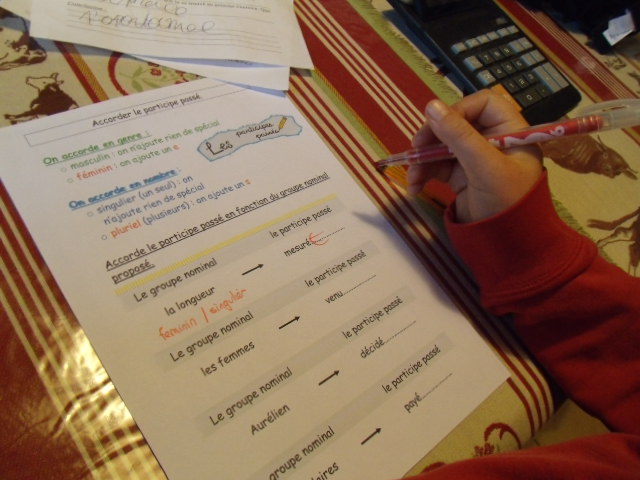 Accorder le participe passé
On accorde en genre :
masculin : on n'ajoute rien de spécial
féminin : on ajoute un e
Les participes passés
On accorde en nombre :
singulier (un seul) : on
n'ajoute rien de spécial
pluriel (plusieurs) : on ajoute un s
Accorde le participe passé en fonction du groupe nominal
proposé.
Le groupe nominal → le participe passé
la longueur mesuré e
féminin / singulier
Le groupe nominal → le participe passé
les femmes venu
Le groupe nominal → le participe passé
Aurélien décidé
groupe nominal → le participe passé
payé